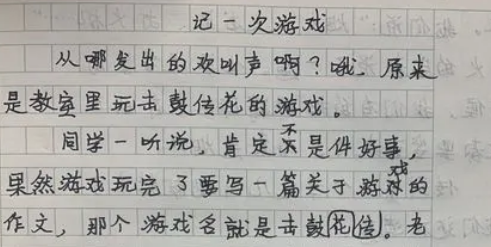 记一次游戏
从哪发出的欢叫声啊？哦，原来
是教室里玩击鼓传花的游戏。
同学一听说，肯定不是件好事，
果然游戏玩完了要写一篇关于游戏的
作文，那个游戏名就是击鼓花传。老